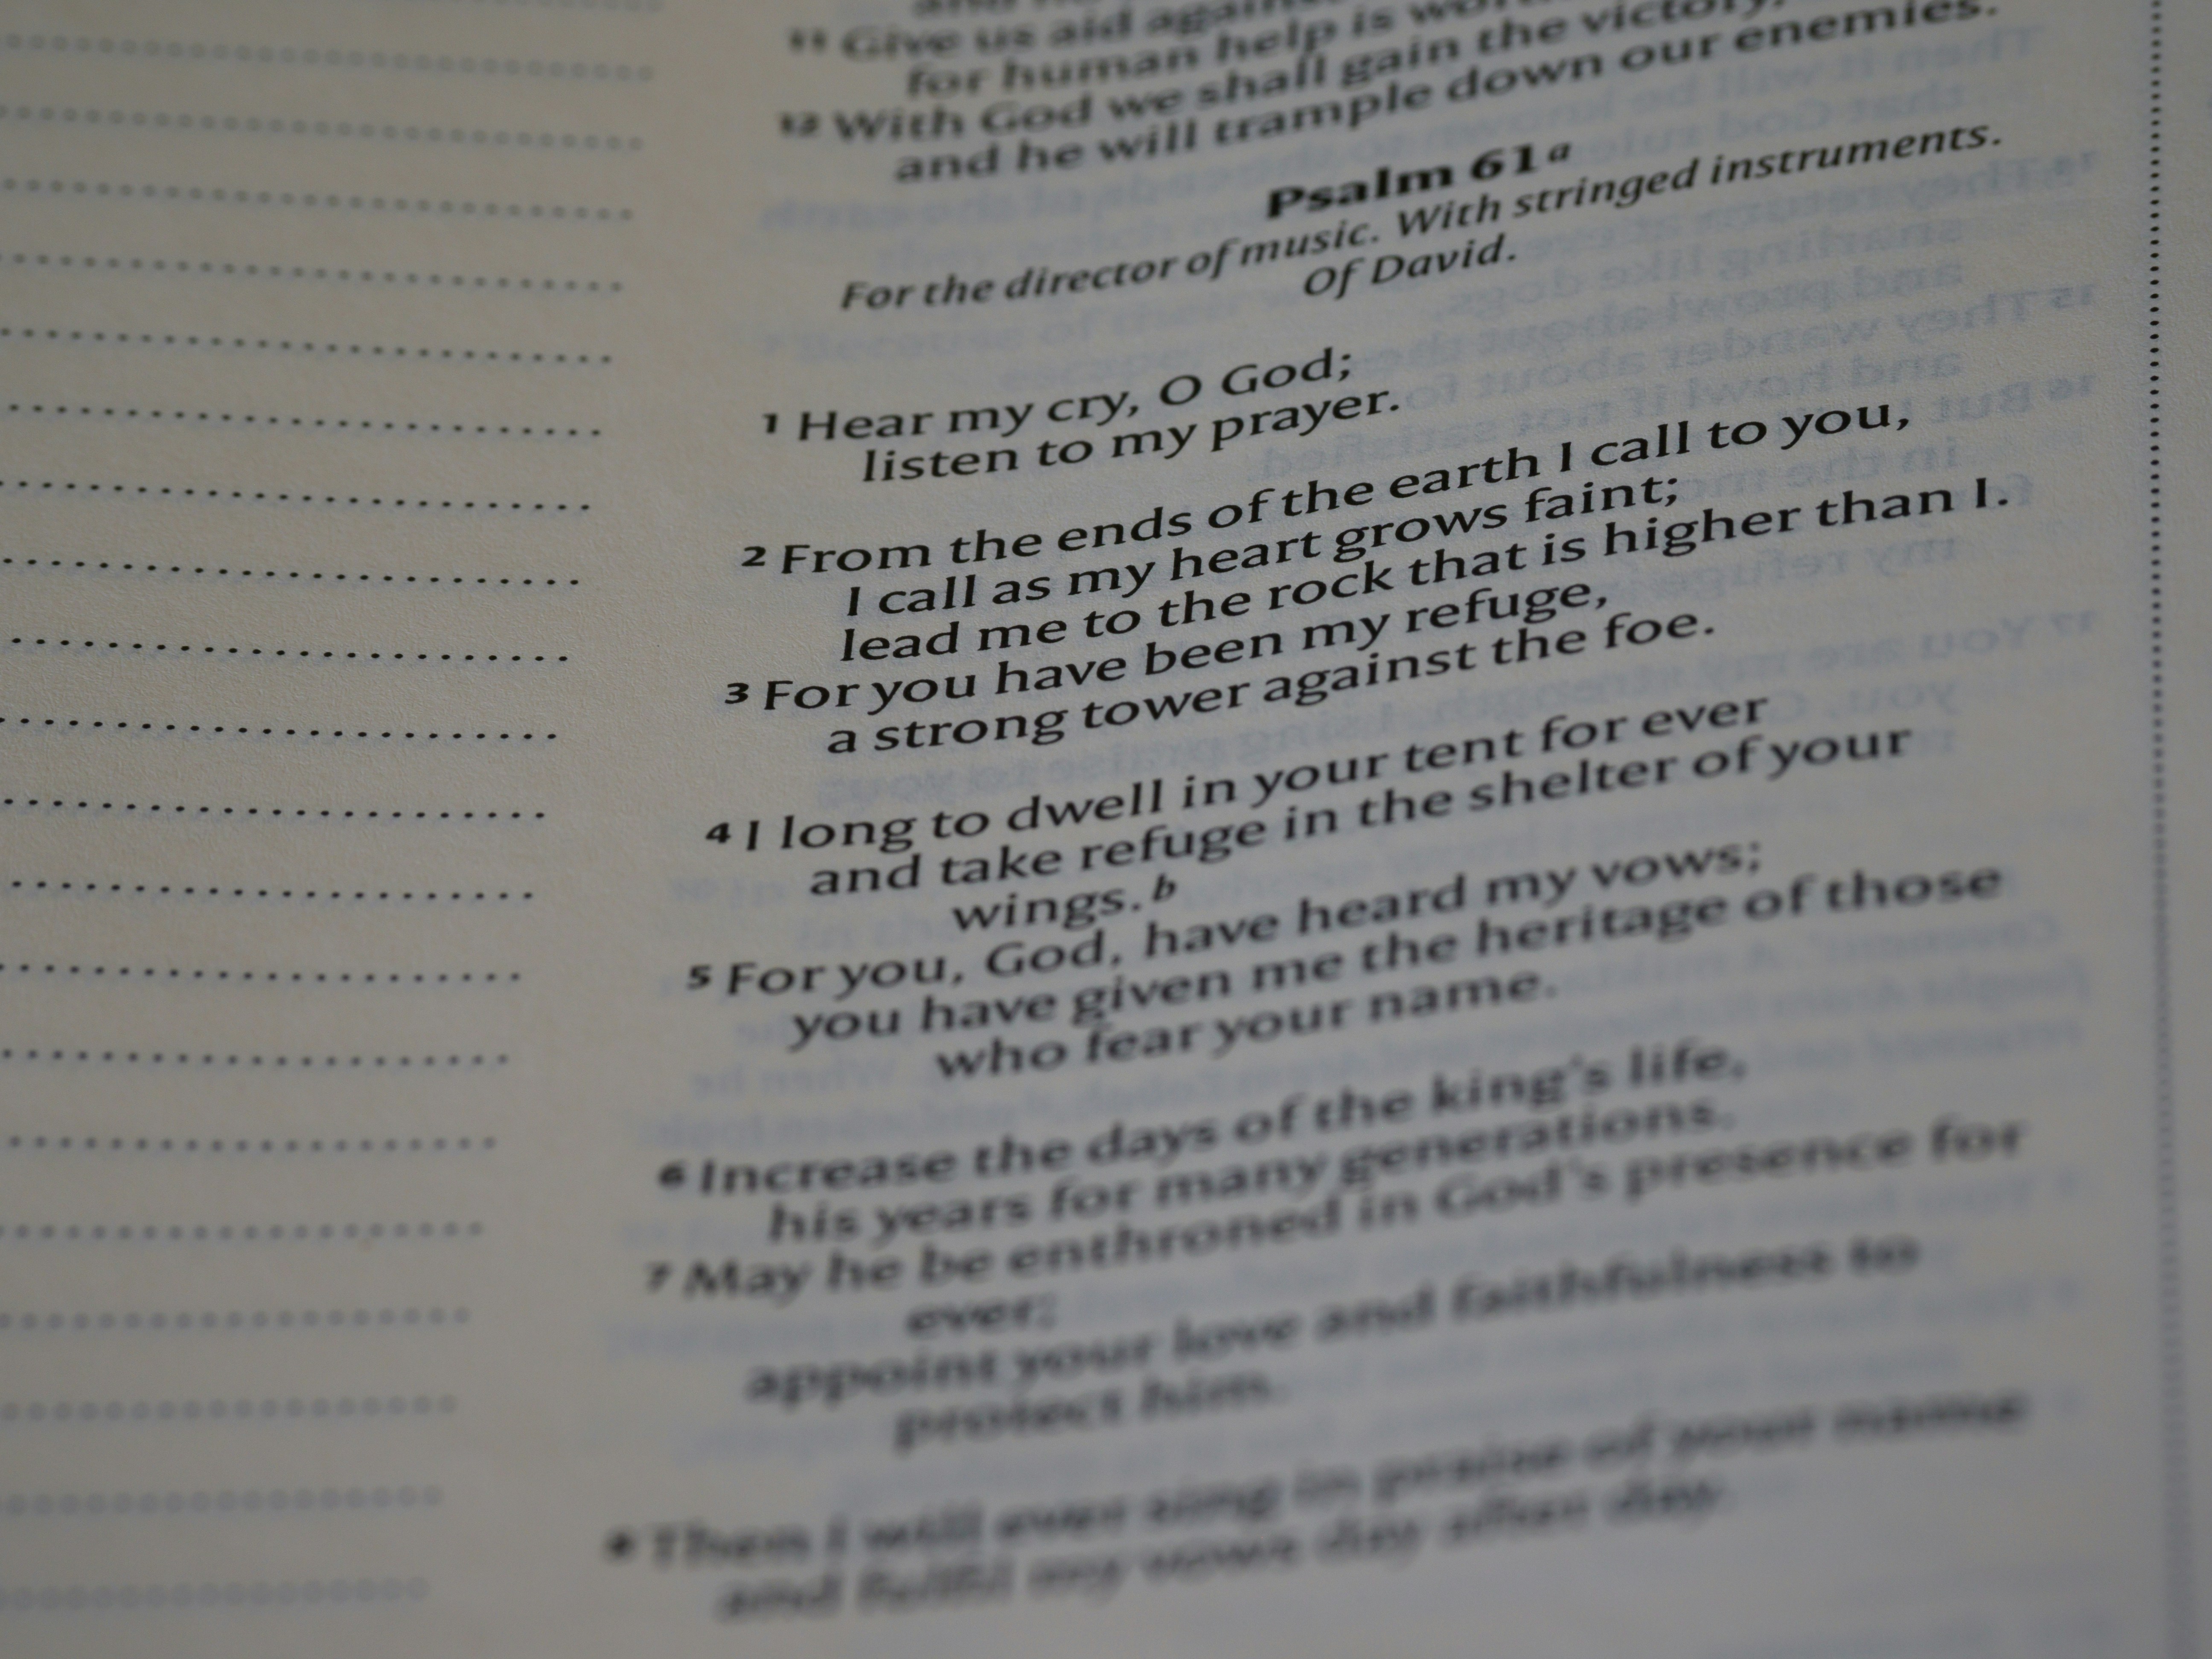 11 Give us aid against
for human help is
12 With God we shall gain the victory,
and he will trample down our enemies.
Psalm 61 a
For the director of music. With stringed instruments.
Of David.
1 Hear my cry, O God;
listen to my prayer.
2 From the ends of the earth I call to you,
I call as my heart grows faint;
lead me to the rock that is higher than I.
3 For you have been my refuge,
a strong tower against the foe.
4 I long to dwell in your tent for ever
and take refuge in the shelter of your
wings. b
5 For you, God, have heard my vows;
you have given me the heritage of those
who fear your name.
6 Increase the days of the king's life,
his years for many generations.
7 May he be enthroned in God's presence for
ever;
appoint your love and faithfulness to
protect him.
8 Then I will ever sing in praise of your name
and fulfil my vows day after day.